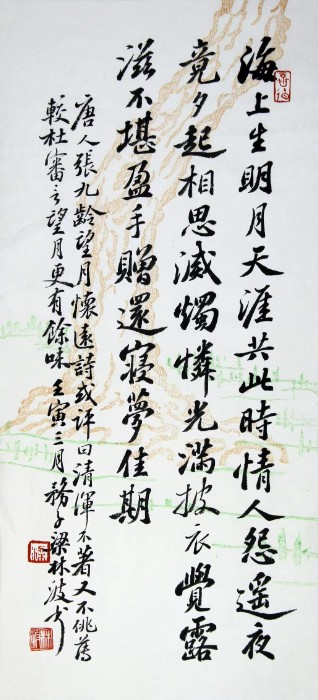 海上生明月天涯共此時情人怨遥夜
竟夕起相思滅燭憐光滿披衣覺露
滋不堪盈手贈還寢夢佳期
唐人張九齡望月懷遠詩或評曰清渾不著又不佻薄
較杜審言望月更有餘味壬寅三月務子梁林波书